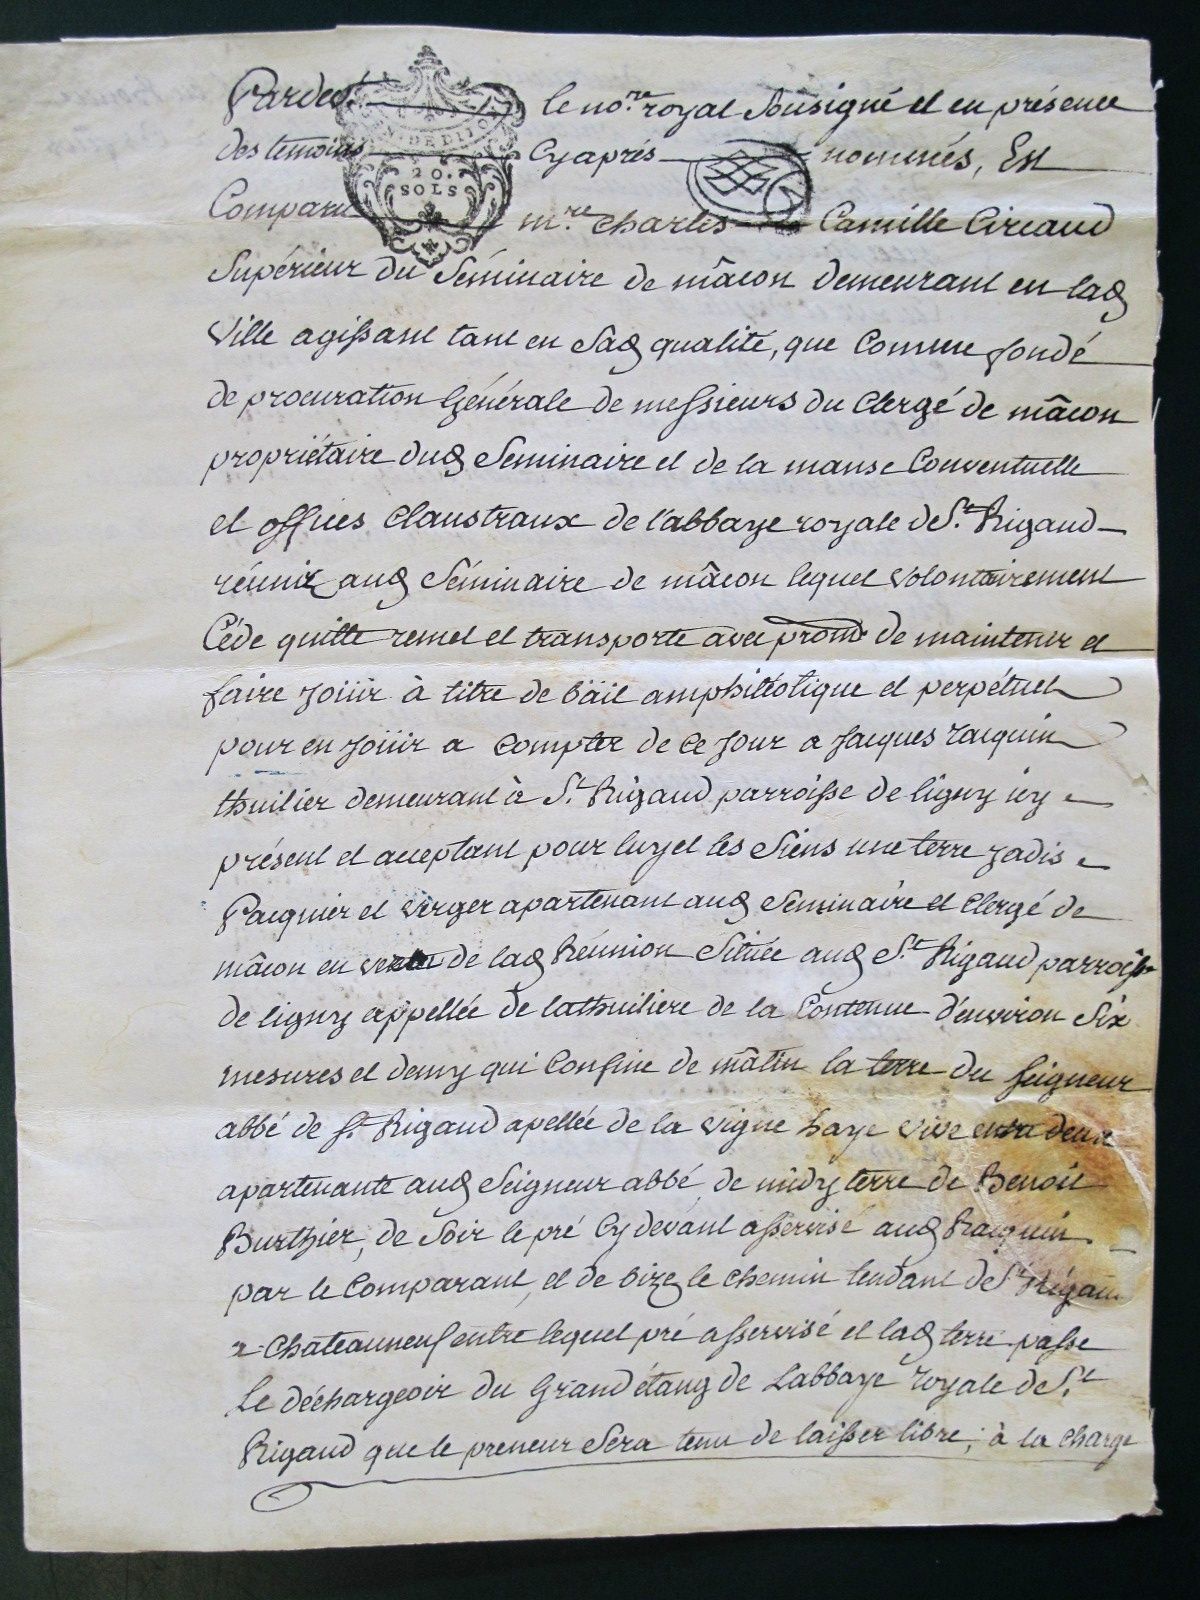 Pardev.t le no.re royal Sousigné et en présence
des temoins Cy aprés nommés, Est
20.
SOLS
Comparu m.re Charles Camille Circaud
Supérieur du Séminaire de mâcon demeurant en lad
Ville agissant tant en Sad qualité, que Comme fondé
de procuration Générale de messieurs du Clergé de mâcon
propriétaire dud Seminaire et de la manse Conventuelle
et offices Claustraux de l'abbaye royale de S.t Rigaud
réunis aud Séminaire de mâcon lequel Volontairement
Céde quitte remet et transporte avec prom.e de maintenir et
faire joüir à titre de bäil amphitéotique et perpétuel
pour en joüir a Compter de Ce jour a Jacques Racquin
thuilier demeurant à S.t Rigaud parroisse de ligny icy
présent et acceptant pour luy et les Siens une terre jadis
Pacquier et verger apartenant aud Seminaire et Clergé de
mâcon en vertu de lad Réunion Située aud S.t Rigaud parroisse
de ligny appellée de lathuiliere de la Contenue d'environ Six
mesures et demy qui Confine de mâtin la terre du Seigneur
abbé de S.t Rigaud apellée de la vigne haye vive entre deux
apartenante aud Seigneur abbé, de midy terre de Benoit
Burthier, de Soir le pré Cy devant asservisé aud Racquin
par le Comparant, et de bize le Chemin tendant de S.t Rigaud
a Chateauneuf entre lequel pré asservisé et lad terre passe
Le déchargeoir du Grand étang de Labbaye Royale de S.t
Rigaud que le preneur Sera tenu de laisser libre; à la Charge